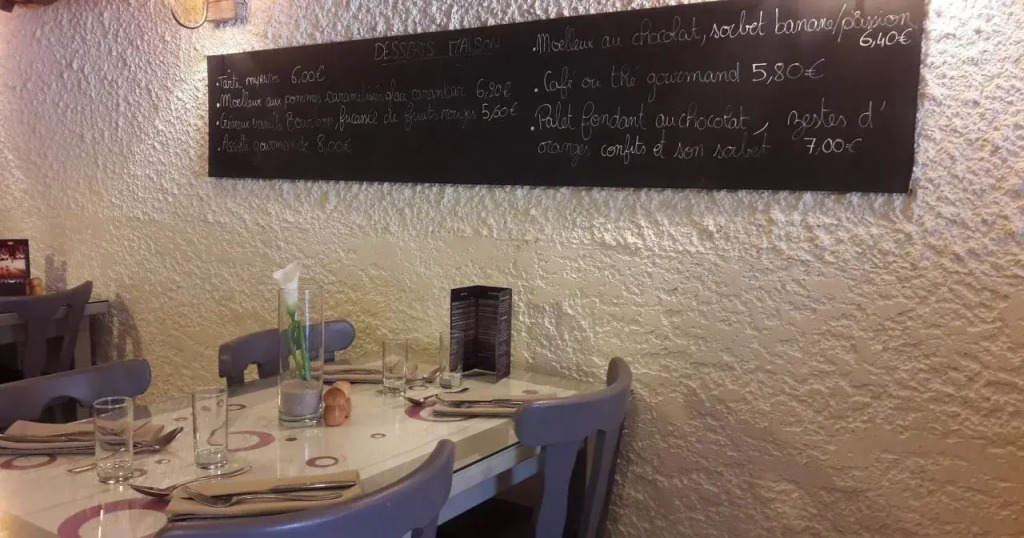 DESSERTS MAISON
. Tarte myrtilles 6,00€
. Moelleux aux pommes caramélisées, glace carambar 6,90€
. Crémeux vanille Bourbon, de fruits rouges 5,60€
. Assiette gourmande 8,00€
. Moelleux au chocolat, sorbet banane/passion
6,40€
. Café ou thé gourmand 5,80€
. Palet fondant au chocolat, zestes d'
oranges confits et son sorbet 7,00€